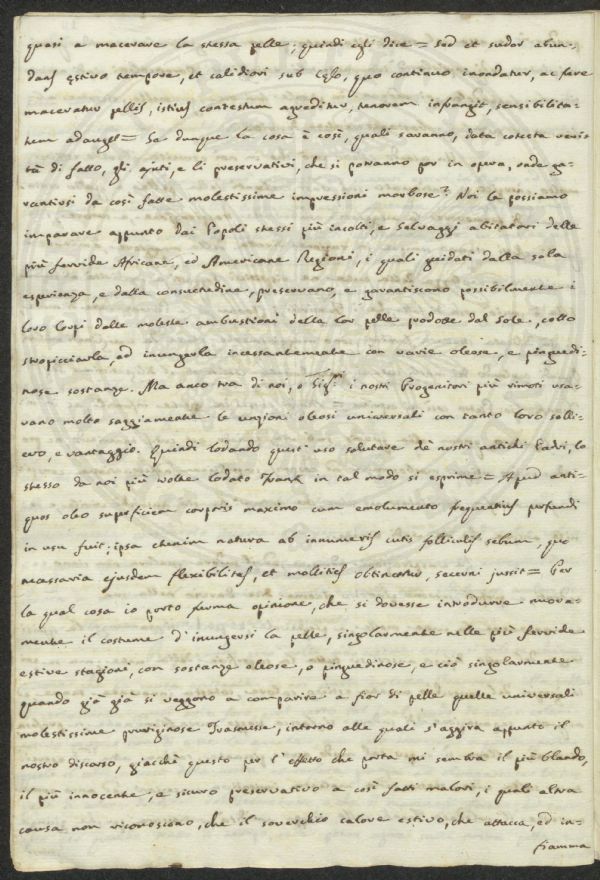 quasi a macerare la stessa pelle; quindi egli dice = Sed et sudor abun-
dans estivo tempore, et calidiori sub Celo, quo continuo inondatur, ac fere
maceratur pellis, istius contextum agreditur, tenorem infrangit, sensibilita-
tem adauget = Se dunque la cosa è così, quali saranno, data cotesta veri-
tà di fatto, gli ajuti, e li preservativi, che si potranno por in opera, onde ga-
rantirsi da così fatte molestissime impressioni morbose? Noi la possiamo
imparare appunto dai Popoli stessi più incolti, e Selvaggi abitatori delle
più fervide Africane, ed Americane Regioni, i quali guidati dalla sola
esperienza, e dalla consuetudine, preservano, e garantiscono possibilmente i
loro Corpi dalle moleste ambustioni della lor pelle prodotte dal Sole, collo
stropicciarla, ed inungerla incessantemente con varie oleose, e pinguedi-
nose sostanze. Ma anco tra di noi, o Sigri i nostri Progenitori più rimoti usa-
vano molto saggiamente le unzioni oleosi universali con tanto loro solli-
evo, e vantaggio. Quindi lodando quest'uso salutare de' nostri antichi Padri, lo
stesso da noi più volte lodato Frank in tal modo si esprime = Apud anti-
quos oleo superficiem corporis maximo cum emolumento frequentius perfundi
in usu fuit; ipsa etenim natura ab innumeris cutis folliculis sebum, quo
massaria ejusdem flexibilitas, et mollities obtineatur, secerni jussit = Per
la qual cosa io porto ferma opinione, che si dovesse introdurre nuova-
mente il costume d'inungersi la pelle, singolarmente nelle più fervide
estive stagioni, con sostanze oleose, o pinguedinose, e ciò singolarmente
quando già già si veggono a comparire a fior di pelle quelle universali
molestissime pruriginose , intorno alle quali s'aggira appunto il
nostro discorso, giacchè questo per l'effetto che porta mi sembra il più blando,
il più innocente, e sicuro preservativo a così fatti malori, i quali altra
causa non riconoscono, che il soverchio calore estivo, che attacca, ed in-
fiamma